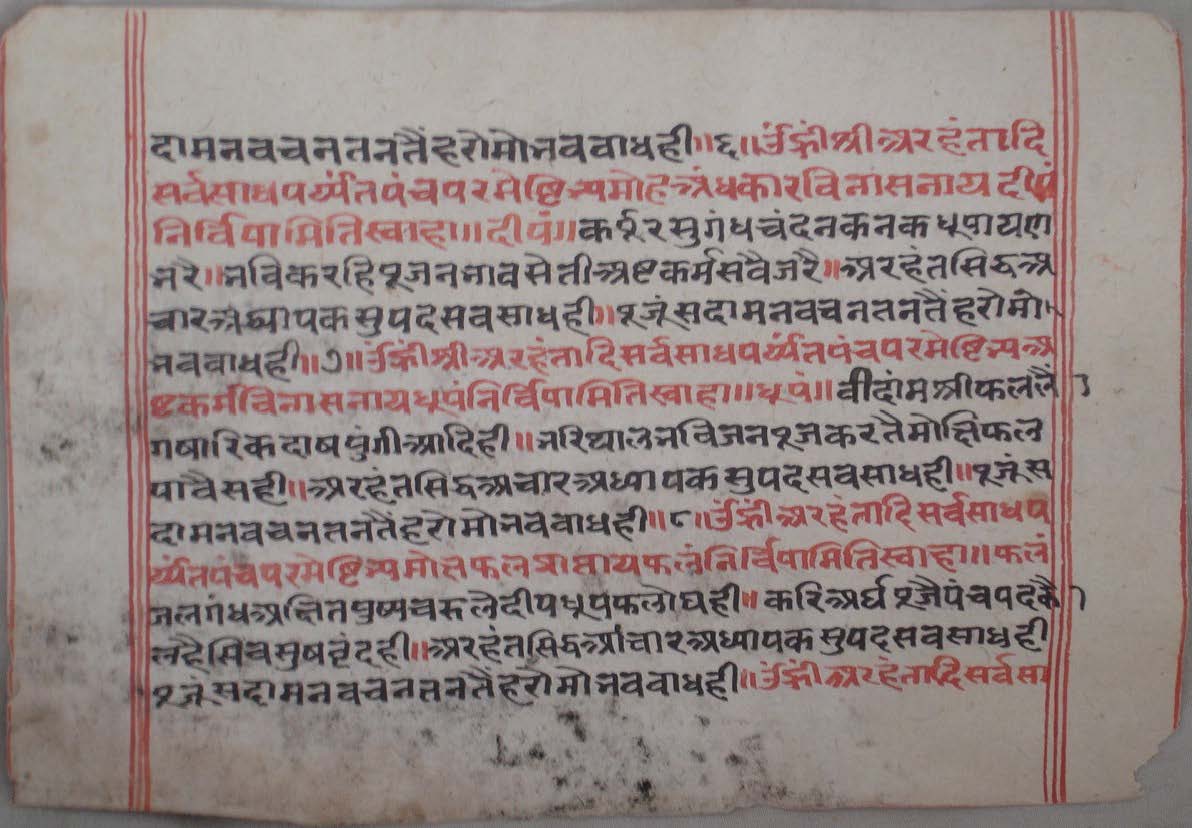 दामनवचनतनतैंहरोमोभववाधही॥६॥उंह्रीं श्री अरहंतादि
सर्वसाधपर्य्यंतपंचपरमेष्टिभ्यमोहअंधकारविनासनाय दीपं
निर्विपामितिस्वाहा॥दीपं॥कर्पूरसुगंधचंदनकनकधूपायण
भरै॥भविकरहिपूजनभावसेतीअष्टकर्मसवैजरै॥अरहंतसिद्धअ
चारअध्यापकसुपदसवसाधही॥पूजूंसदामनवचनतनतैंहरोमो
भववाधही॥७॥उंह्रींश्रीअरहंतादिसर्वसाधपर्य्यंतपंचपरमेष्टिभ्यअ
ष्टकर्मविनासनायधूपंनिर्विपामितिस्वाहा॥धूपं॥वीदांमश्रीफललैं
गषारिकदाषपुंगीआदिही॥भरिथालभविजनपूजकरतैमोक्षिफल
पावैसही॥अरहंतसिद्धअचारअध्यापकसुपदसवसाधही॥पूजूंस
दामनवचनतनतैंहरोमोभववाधही॥८॥उंह्रींअरहंतादिसर्वसाधप
र्य्यंतपंचपरमेष्टिभ्यमोक्षफलप्राप्तायफलंनिर्विपामितिस्वाहा॥फलं
जलगंधअक्षितपुष्पचरुलैदीपधूपफलोघही॥करिअर्घपूजैपंचपदकै
लहैसिवसुषवृंदही॥अरहंतसिद्धआचारअध्यापकसुपदसवसाधही
पूजूंसदामनवचनतनतैंहरोमोभववाधही॥उंह्रींअरहंतादिसर्वसा